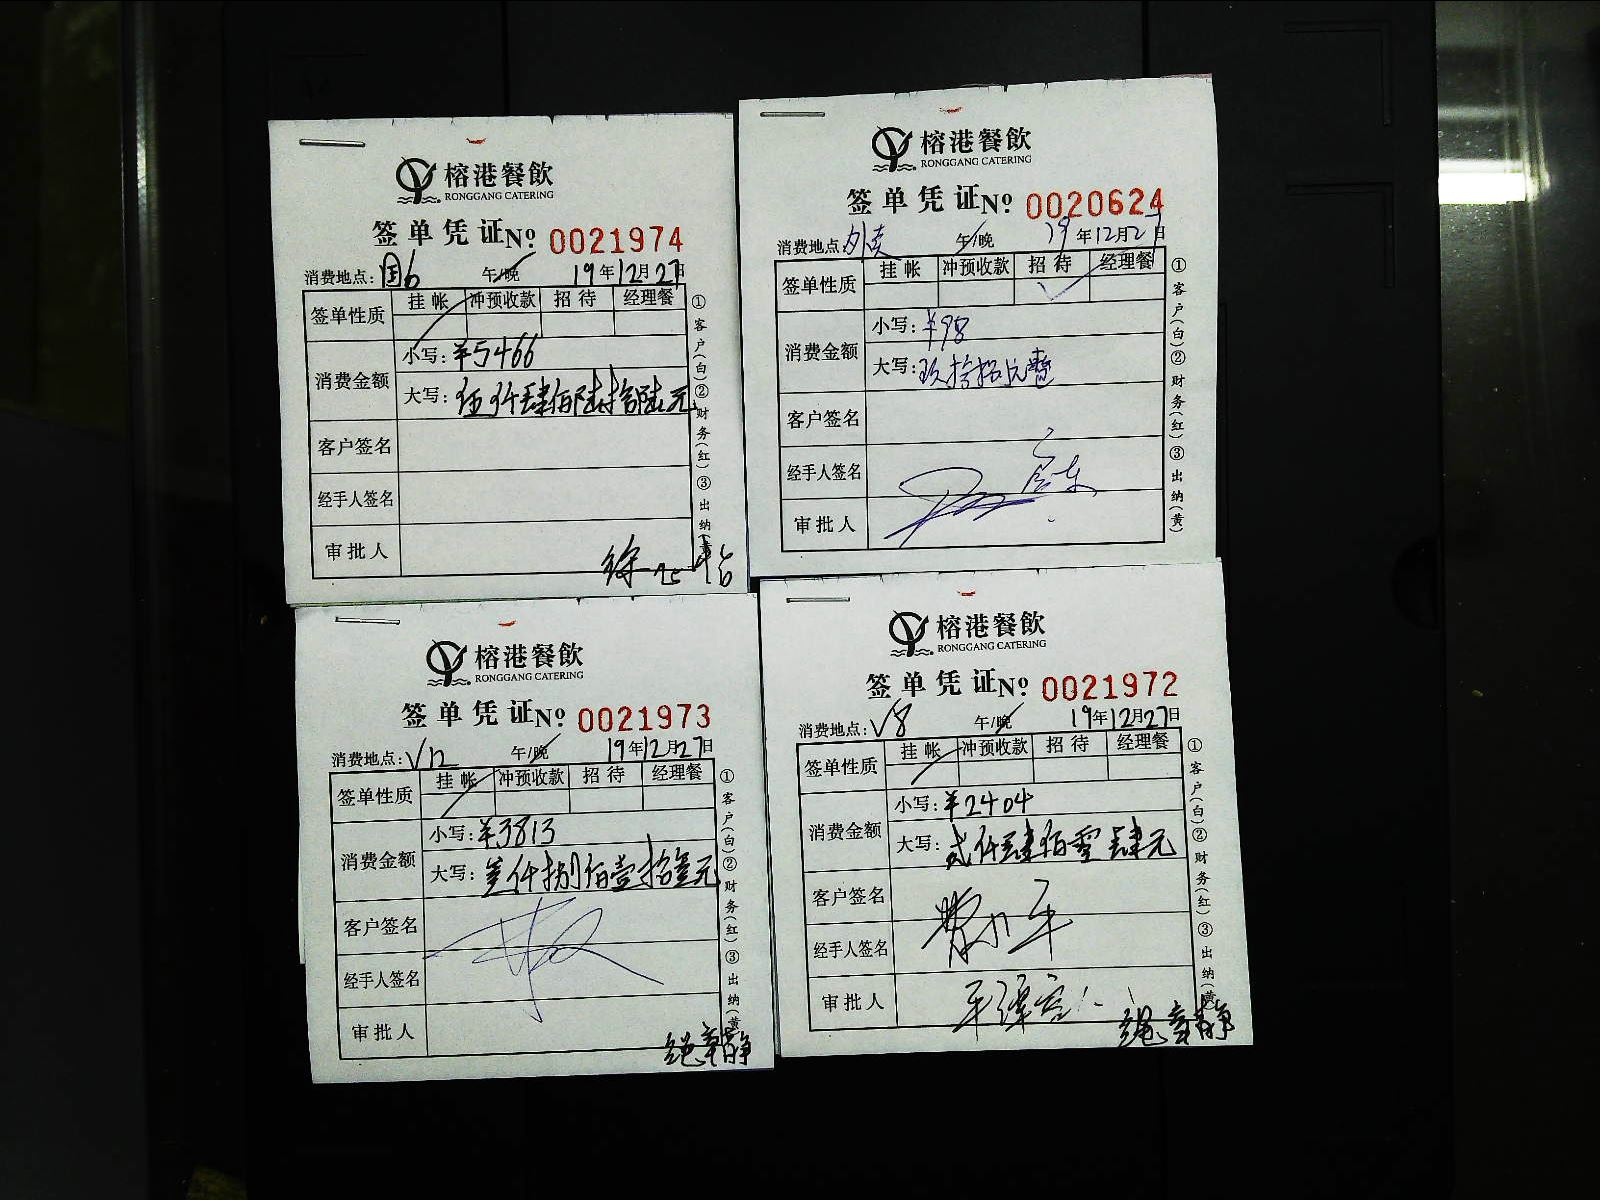 榕港餐飲
RONGGANG CATERING
签单凭证№ 0021974
消费地点: 国6 午/晚 19年12月27日
签单性质 挂帐 冲预收款 招待 经理餐
消费金额
小写: ¥5466
大写: 伍仟肆佰陆拾陆元
客户签名
经手人签名
审批人
①客户(白)②财务(红)③出纳(黄)
榕港餐飲
RONGGANG CATERING
签单凭证№ 0020624
消费地点: 外卖 午/晚 19年12月27日
签单性质 挂帐 冲预收款 招待 经理餐
消费金额
小写: ¥98
大写: 玖拾捌元整
客户签名
经手人签名
审批人
①客户(白)②财务(红)③出纳(黄)
榕港餐飲
RONGGANG CATERING
签单凭证№ 0021973
消费地点: V12 午/晚 19年12月27日
签单性质 挂帐 冲预收款 招待 经理餐
消费金额
小写: ¥3813
大写: 叁仟捌佰壹拾叁元
客户签名
经手人签名
审批人
①客户(白)②财务(红)③出纳(黄)
榕港餐飲
RONGGANG CATERING
签单凭证№ 0021972
消费地点: V8 午/晚 19年12月27日
签单性质 挂帐 冲预收款 招待 经理餐
消费金额
小写: ¥2404
大写: 贰仟肆佰零肆元
客户签名
经手人签名
审批人
①客户(白)②财务(红)③出纳(黄)